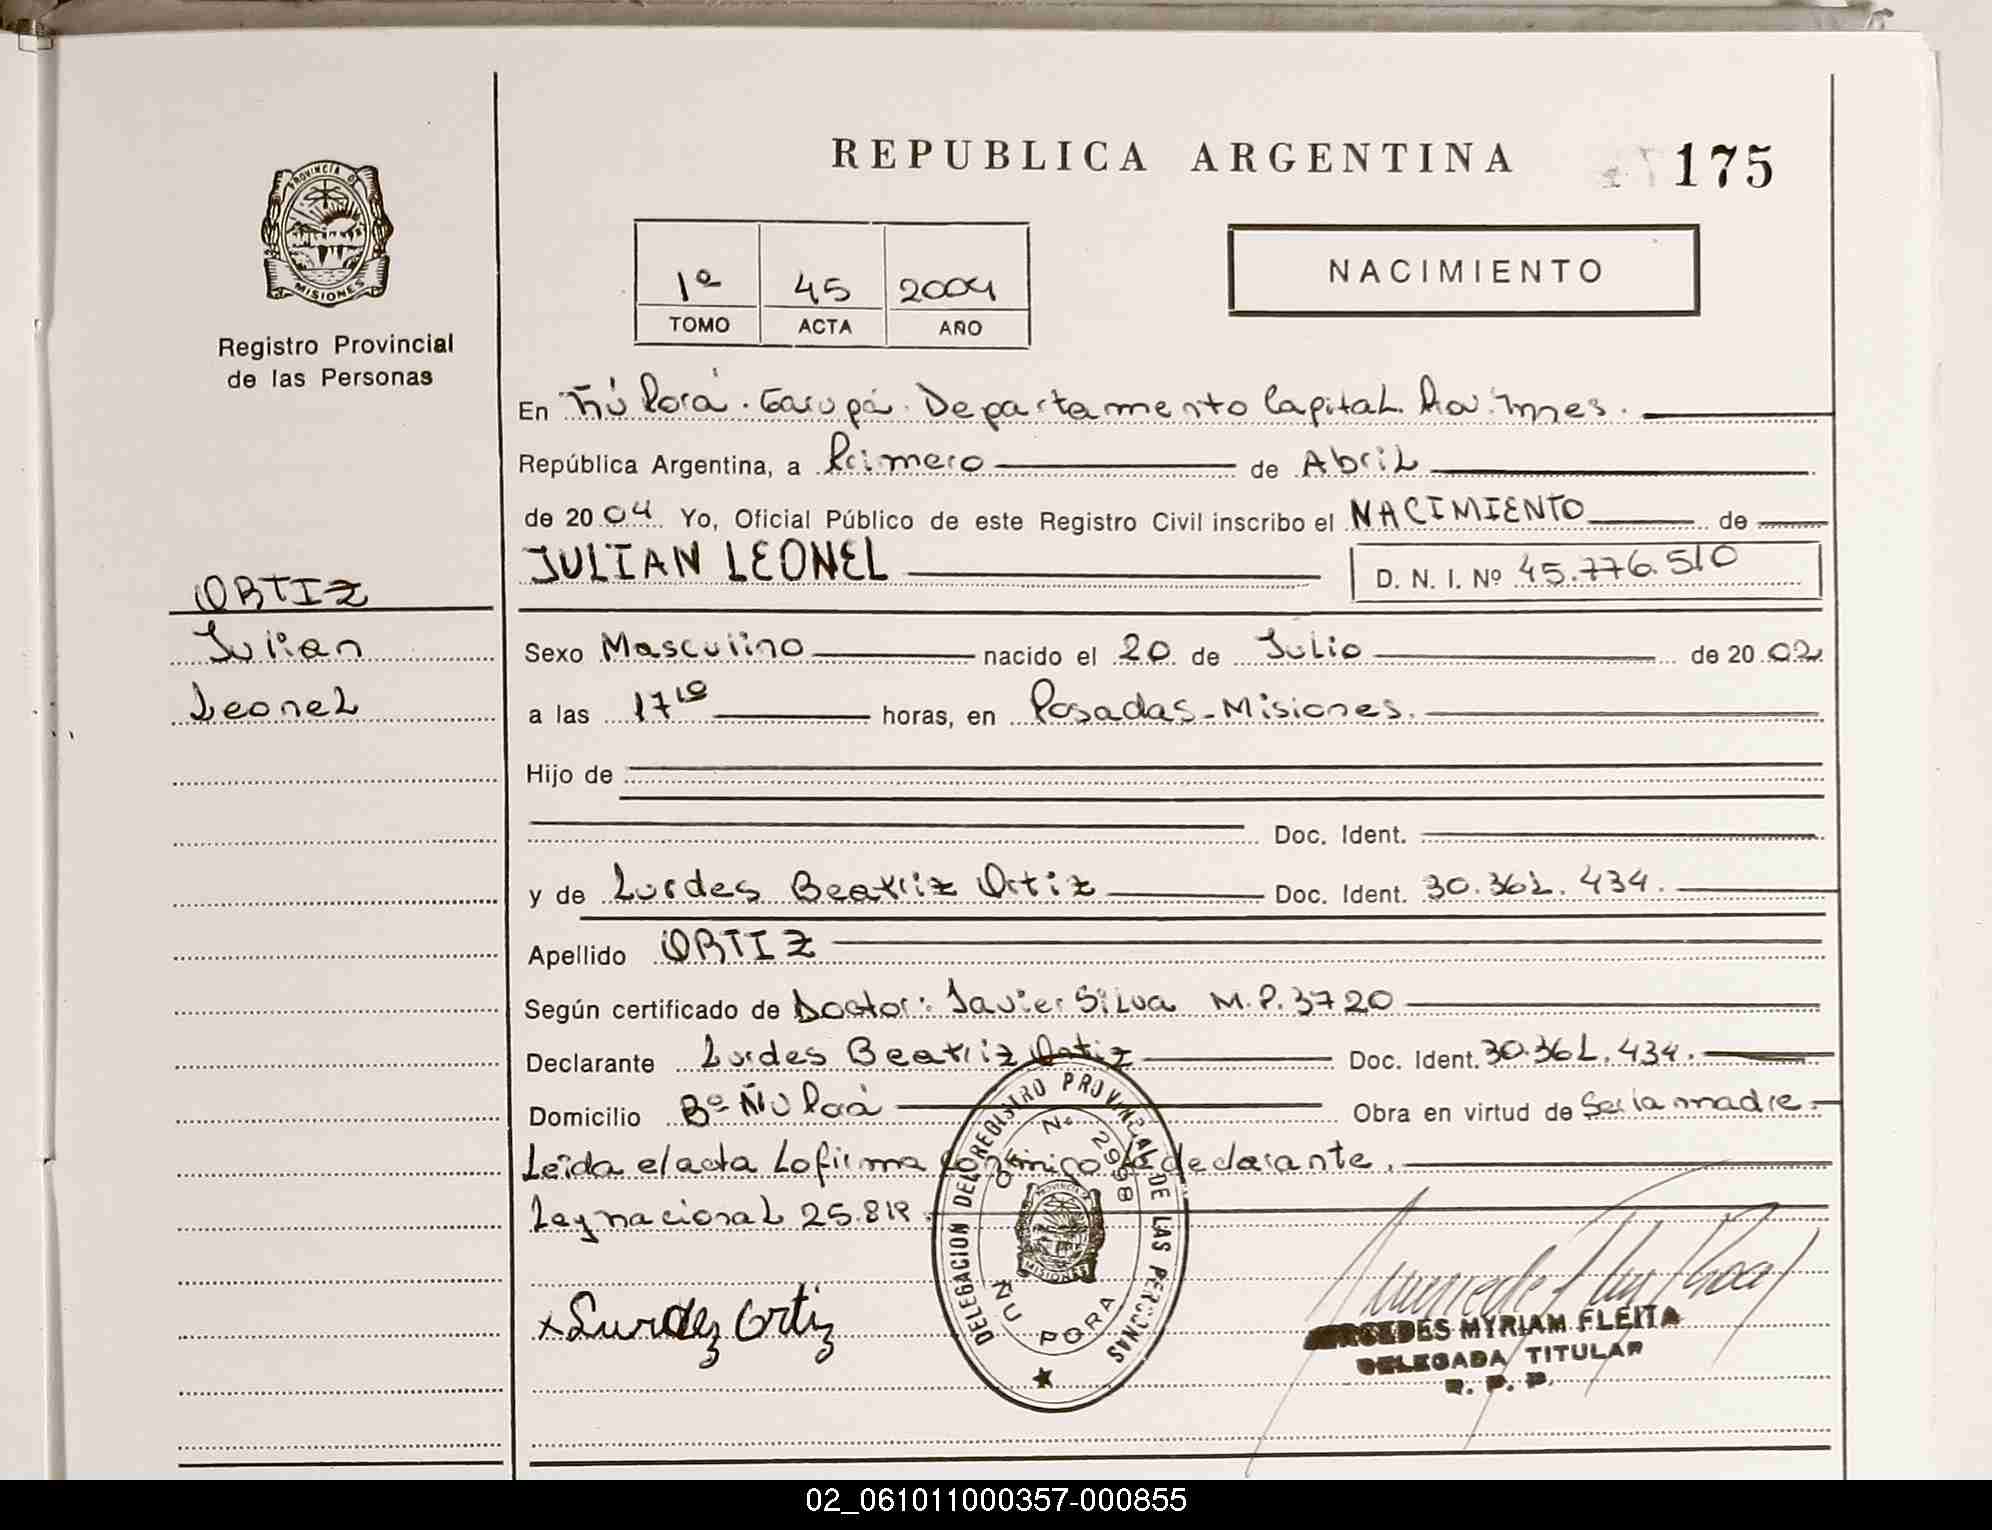 REPUBLICA ARGENTINA
175
PROVINCIA DE
MISIONES
Registro Provincial
de las Personas
1º 45 2004
TOMO ACTA AÑO
NACIMIENTO
En Ñú Porá. Garupá. Departamento Capital. Prov. Mnes.
República Argentina, a Primero de Abril
de 2004 Yo, Oficial Público de este Registro Civil inscribo el NACIMIENTO de
JULIAN LEONEL D. N. I. Nº 45.776.510
ORTIZ
Julian
Leonel
Sexo Masculino nacido el 20 de Julio de 2002
a las 17 10 horas, en Posadas - Misiones.
Hijo de
Doc. Ident.
y de Lurdes Beatriz Ortiz Doc. Ident. 30.362.434.
Apellido ORTIZ
Según certificado de Doctor: Javier Silva M.P. 3720
Declarante Lurdes Beatriz Ortiz Doc. Ident. 30.362.434.
Domicilio Bº Ñu Porá Obra en virtud de Ser la madre.
Leída el acta La firma conmigo la declarante.
Ley nacional 25.819.
x Lurdez Ortiz
DELEGACION DEL REGISTRO PROVINCIAL DE LAS PERSONAS
Nº 2998
MISIONES
ÑU PORA
MERCEDES MYRIAM FLEITA
DELEGADA TITULAR
R. P. P.
02_061011000357-000855